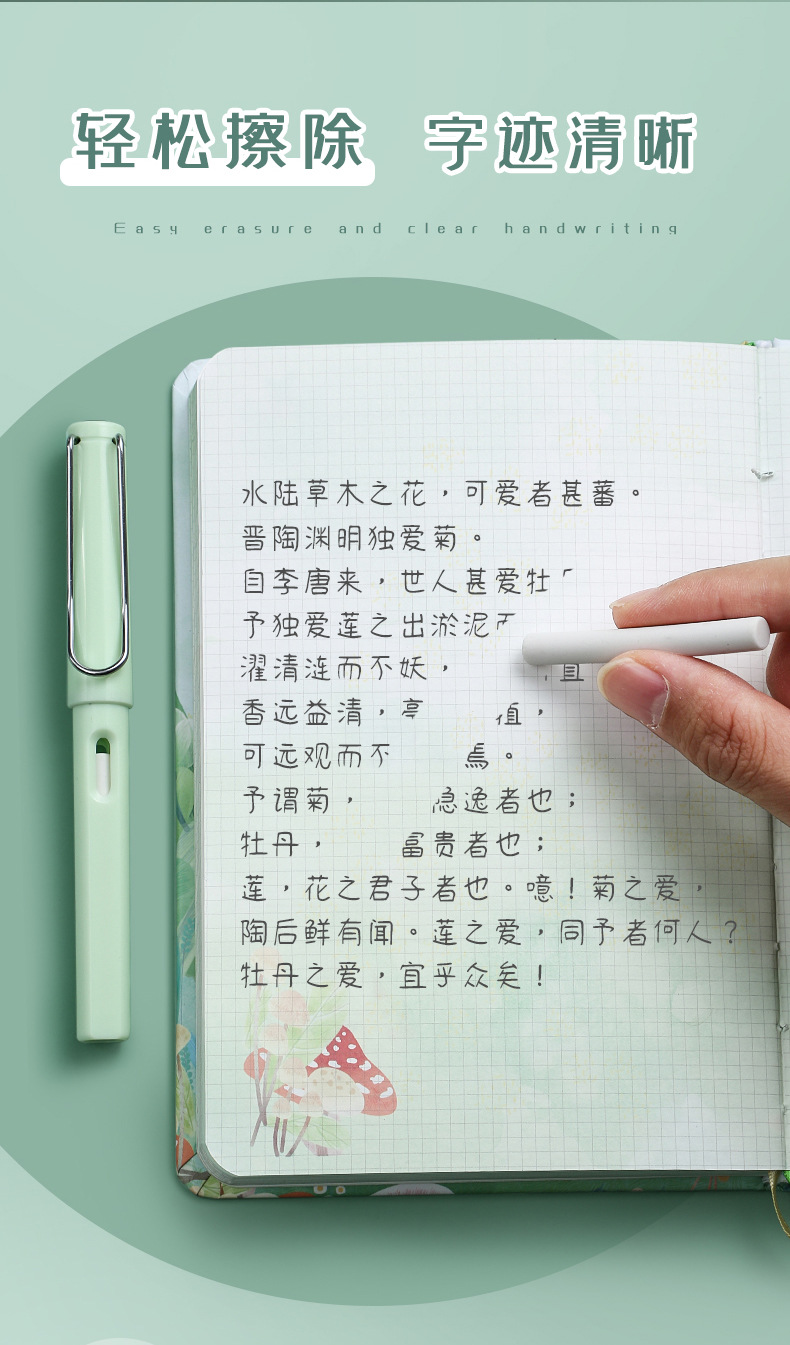 轻松擦除 字迹清晰
Easy erasure and clear handwriting
水陆草木之花，可爱者甚蕃。
晋陶渊明独爱菊。
自李唐来，世人甚爱牡
予独爱莲之出淤泥
濯清涟而不妖， 直
香远益清，亭 植，
可远观而不 焉。
予谓菊， 隐逸者也；
牡丹， 富贵者也；
莲，花之君子者也。噫！菊之爱，
陶后鲜有闻。莲之爱，同予者何人？
牡丹之爱，宜乎众矣！